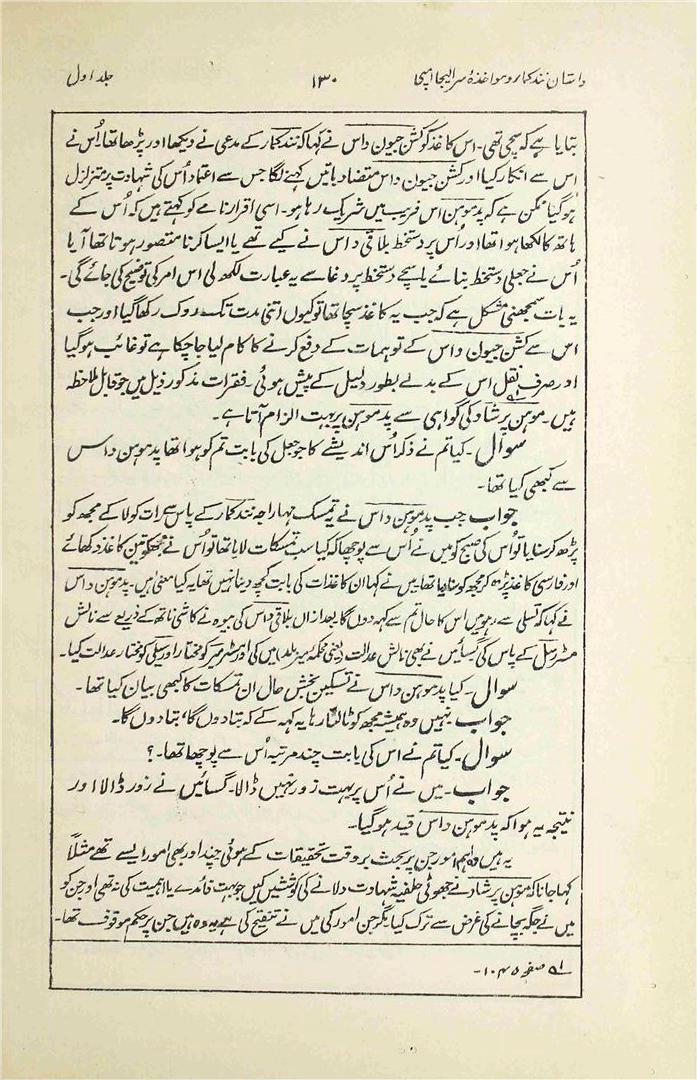 داستان نند کمار و مواخذۂ سر الیجا امپی ۱۳۰ جلد اول
بتایا ہے کہ سچی تھی۔ اس کاغذ کو کشن جیون داس نے کہا کہ نند کمار کے مدعی نے دیکھا اور پڑھا تھا اُس نے
اس سے انکار کیا اور کشن جیون داس متضاد باتیں کہنے لگا جس سے اعتماد اُس کی شہادت پر متزلزل
ہو گیا ممکن ہے کہ پدموہن اس فریب میں شریک رہا ہو۔ اسی اقرار نامے کو کہتے ہیں کہ اُس کے
ہاتھ کا لکھا ہوا تھا اور اُس پر دستخط بلاقی داس نے کیے تھے یا ایسا کرنا متصور ہوتا تھا آیا
اُس نے جعلی دستخط بنائے یا سچے دستخط پر دغا سے یہ عبارت لکھ لی اس امر کی توضیح کی جائے گی۔
یہ بات سمجھنی مشکل ہے کہ جب یہ کاغذ سچا تھا تو کیوں اتنی مدت تک روک رکھا گیا اور جب
اس سے کشن جیون داس کے توہمات کے دفع کرنے کا کام لیا جا چکا ہے تو غائب ہو گیا
اور صرف نقل اس کے بدلے بطور دلیل کے پیش ہوئی۔ فقرات مذکور ذیل میں جو قابل ملاحظہ
ہیں۔ موہن پرشاد کی گواہی سے پدموہن پر بہت الزام آتا ہے۔
سوال۔ کیا تم نے ذکر اُس اندیشے کا جو جعل کی بابت تم کو ہوا تھا پدموہن داس
سے کبھی کیا تھا۔
جواب جب پدموہن داس نے یہ تمسک مہاراجہ نند کمار کے پاس سے رات کو لا کے مجھ کو
پڑھ کر سنایا تو اُس کی صبح کو میں نے اُس سے پوچھا کہ کیا سب تمسکات لایا تھا تو اُس نے مجھ کو تین کاغذ دکھائے
اور فارسی کاغذ پڑھ کر مجھ کو سنایا تھا میں نے کہا ان کاغذات کی بابت کچھ دینا نہیں تھا یہ کیا معنی ہیں۔ پدموہن داس
نے کہا کہ تسلی سے رہو میں اس کا حال تم سے کہہ دوں گا بعد ازاں بلاقی داس کی بیوہ نے کاشی ناتھ کے ذریعے سے نالش
مسٹر رسل کے پاس کی گسائیں نے بھی نالش عدالت دیعنی محکمہ میئر بلدا میں کی اور مسٹر میر کو مختار اور سیلی کو مختار عدالت کیا۔
سوال۔ کیا پدموہن داس نے تسکین بخش حال ان تمسکات کا کبھی بیان کیا تھا۔
جواب نہیں وہ ہمیشہ مجھ کو ٹالتا رہا یہ کہہ کے کہ بتا دوں گا، بتا دوں گا۔
سوال۔ کیا تم نے اس کی بابت چند مرتبہ اُس سے پوچھا تھا۔؟
جواب۔ میں نے اُس پر بہت زور نہیں ڈالا۔ گسائیں نے زور ڈالا اور
نتیجہ یہ ہوا کہ پدموہن داس قید ہو گیا۔
یہ ہیں وہ اہم امور جن پر بحث بروقت تحقیقات کے ہوئی چند اور بھی امور ایسے تھے مثلاً
کہا جانا کہ موہن پرشاد نے جھوٹی حلفیہ شہادت دلانے کی کوششیں کیں جو بہت فائدے یا اہمیت کی نہ تھی اور جن کو
میں نے جگہ بچانے کی غرض سے ترک کیا مگر جن امور کی میں نے تنقیح کی ہے یہ وہ ہیں جن پر حکم موقوف تھا۔
۵۱ صفحہ ۱۰۴۵۔